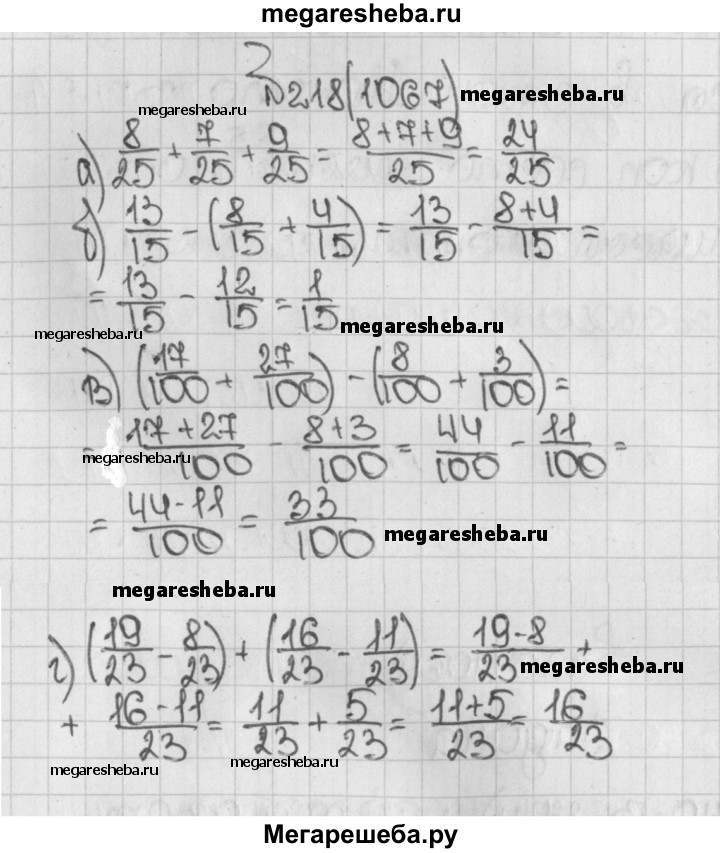 megaresheba.ru
№218(1067)
megaresheba.ru megaresheba.ru
а) 8/25 + 7/25 + 9/25 = (8+7+9)/25 = 24/25
б) 13/15 - (8/15 + 4/15) = 13/15 - (8+4)/15 =
= 13/15 - 12/15 = 1/15
megaresheba.ru megaresheba.ru
в) (17/100 + 27/100) - (8/100 + 3/100) =
= (17+27)/100 - (8+3)/100 = 44/100 - 11/100 =
megaresheba.ru
= (44-11)/100 = 33/100
megaresheba.ru
megaresheba.ru
г) (19/23 - 8/23) + (16/23 - 11/23) = (19-8)/23 +
megaresheba.ru
+ (16-11)/23 = 11/23 + 5/23 = (11+5)/23 = 16/23
megaresheba.ru megaresheba.ru
Мегарешеба.ру